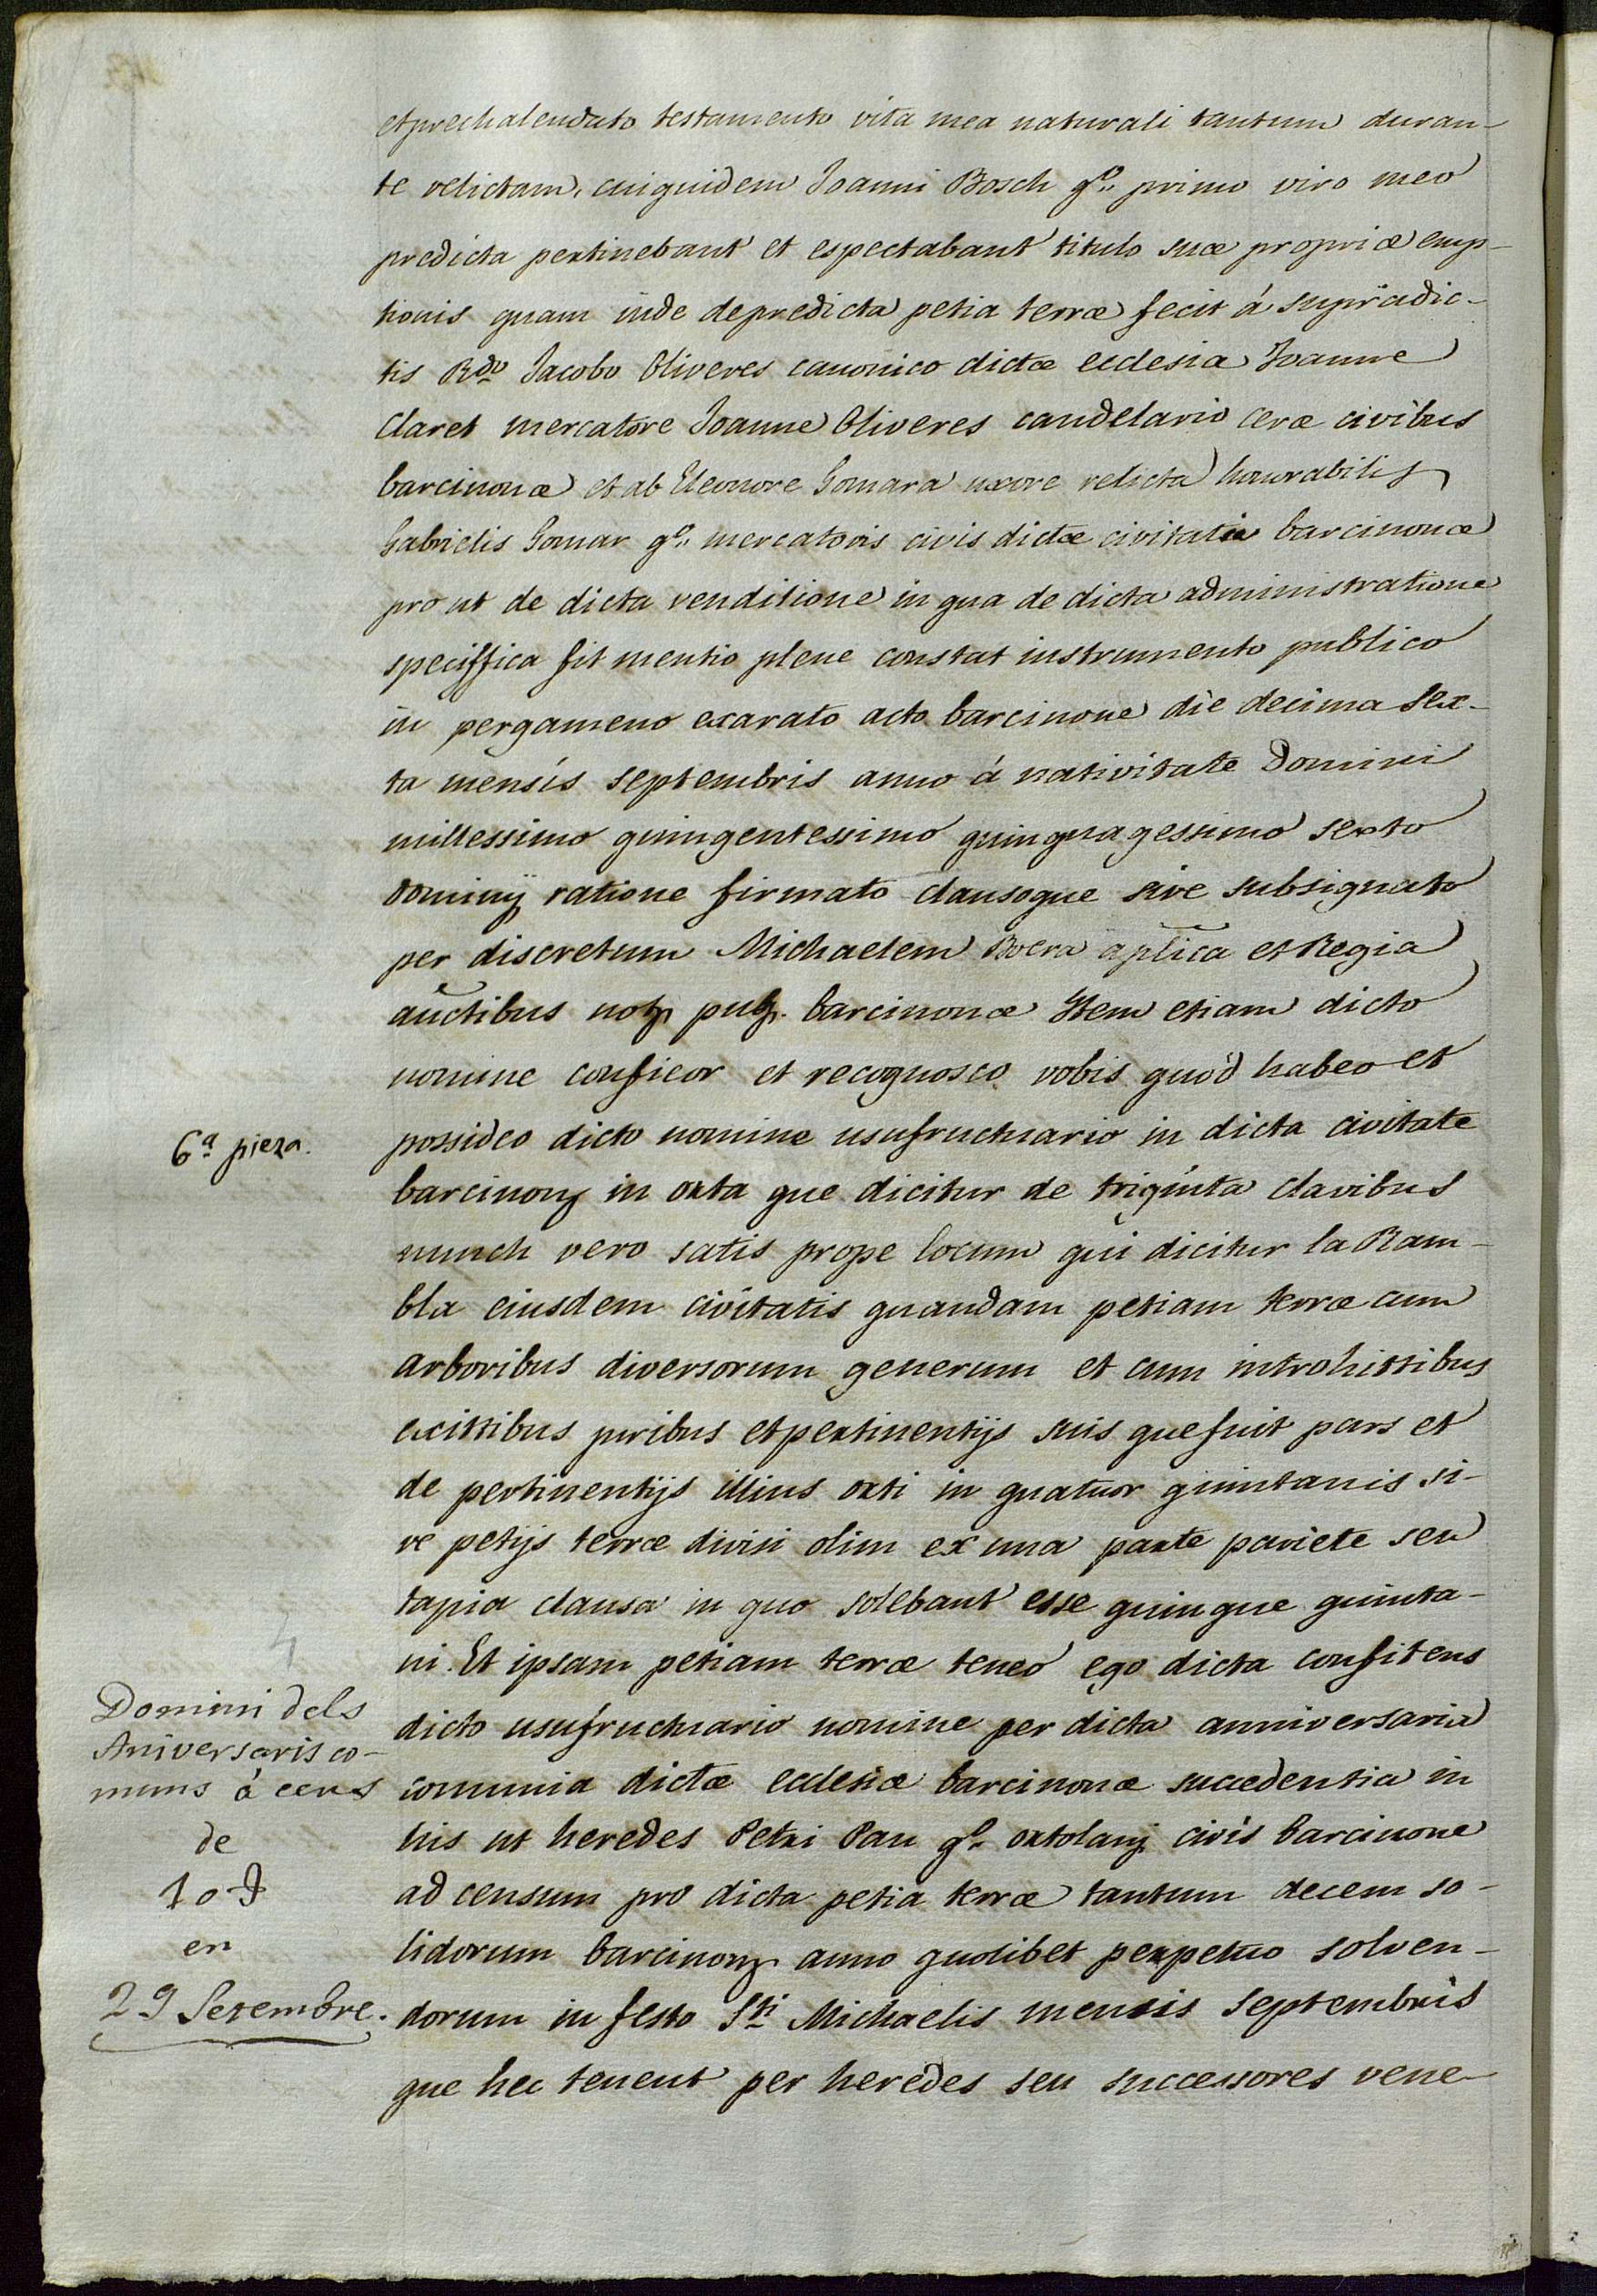 et prechalendato testamento vita mea naturali tantum duran-
te relictam, cuiquidem Joanni Bosch qº. primo viro meo
predicta pertinebant et espectabant titulo suæ propriæ emp-
tionis quam inde de predicta petia terræ fecit á supradic-
tis Rdo Jacobo Oliveres canonico dictæ ecclesiæ Joanne
Claret mercatore Joanne Oliveres candelario ceræ civibus
barcinonæ et ab Eleonore Gomara uxore relicta honorabilis
Gabrielis Gomar qº. mercatoris civis dictæ civitatis barcinonæ
pro ut de dicta venditione in qua de dicta administratione
speciffica fit mentio plene constat instrumento publico
in pergameno exarato acto barcinone die decima sex-
ta mensis septembris anno á nativitate Domini
millessimo quingentessimo quinquagessimo sexto
dominij ratione firmato clausoque sive subsignato
per discretum Michaelem Boera aplica et Regia
auctibus notz pubz. barcinonæ Item etiam dicto
nomine conficor et recognosco vobis quód habeo et
6ª pieza.
possideo dicto nomine usufructuario in dicta civitate
barcinonz in orta que dicitur de triginta clavibus
nunch vero satis prope locum qui dicitur la Ram-
bla eiusdem civitatis quandam petiam terræ cum
arboribus diversorum generum et cum introhittibus
exittibus juribus et pertinentijs suis que fuit pars et
de pertinentijs illius orti in quatuor quintanis si-
ve petijs terræ divisi olim ex una parte pariete seu
tapia clausa in quo solebant esse quinque quinta-
ni. Et ipsam petiam terræ teneo ego dicta confitens
Domini dels
Aniversaris co-
muns á cens
de
10 ₰
en
29 Setembre.
dicto usufructuario nomine per dicta anniversaria
comunia dictæ ecclesiæ barcinonæ succedentia in
his ut heredes Petri Pau qº. ortolanj civis barcinone
ad censum pro dicta petia terræ tantum decem so-
lidorum barcinonz anno quolibet perpetuo solven-
dorum in festo Sti Michaelis mensis septembris
que hec tenent per heredes seu successores vene-